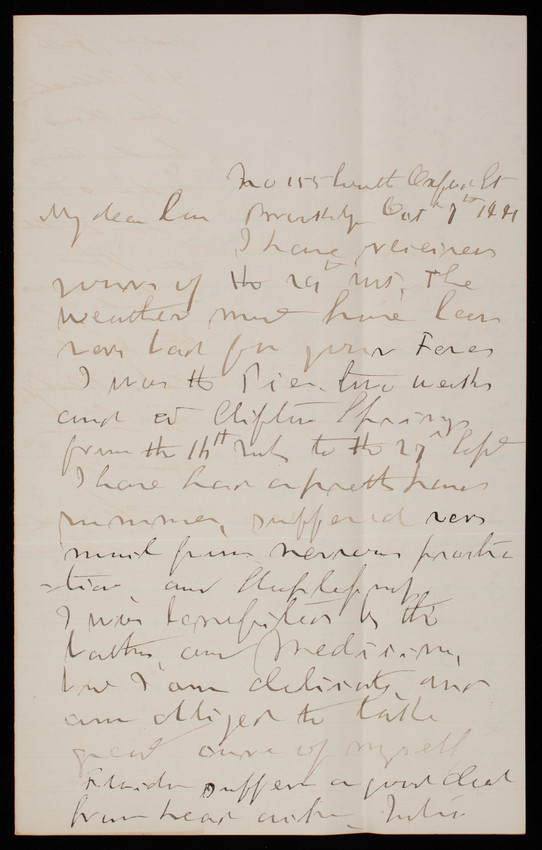 No 155 South Oxford St
My dear Brooklyn Oct 7th 1881
I have received
yours of the 29th inst, The
weather must have been
very bad for your
I was two weeks
and at Clifton Springs
from the 14th to the 27th Sept
I have had a pretty hard
summer, suffered very
much from nervous prostra
-tion, and sleeplessness
I was benefited by the
baths, and Medicine,
but I am delicate, and
am obliged to take
great care of myself
suffers a good deal
from head ache, Julia